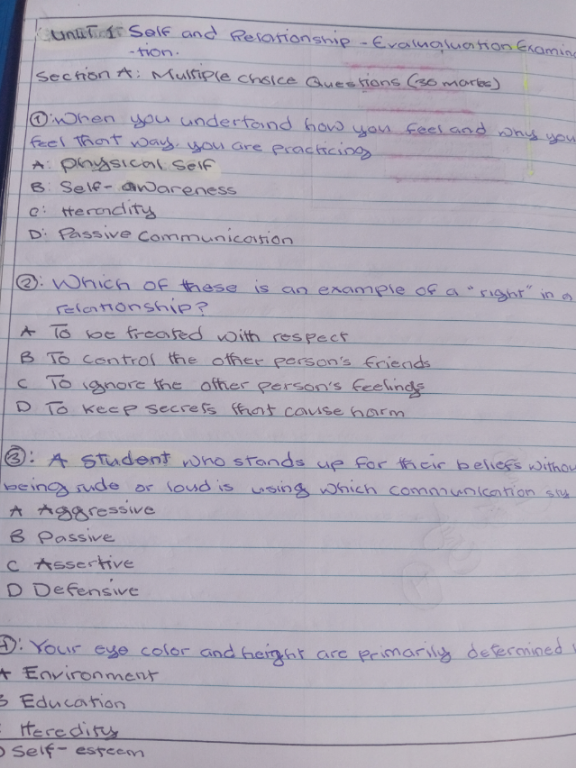 Unit 1: Self and Relationship - Evalualuation Examin
-tion.
Section A: Multiple choice Questions (30 marks)
①: When you undertand how you feel and why you
feel that way, you are practicing
A: Physical Self
B: Self-awareness
C: Heredity
D: Passive communication
②: Which of these is an example of a "right" in a
relationship?
A To be treated with respect
B To control the other person's friends
C To ignore the other person's feelings
D To keep secrets that cause harm
③: A student who stands up for their beliefs withou
being rude or loud is using which communication sty
A Aggressive
B Passive
C Assertive
D Defensive
4): Your eye color and height are primarily determined
A Environment
B Education
: Heredity
D Self-esteem